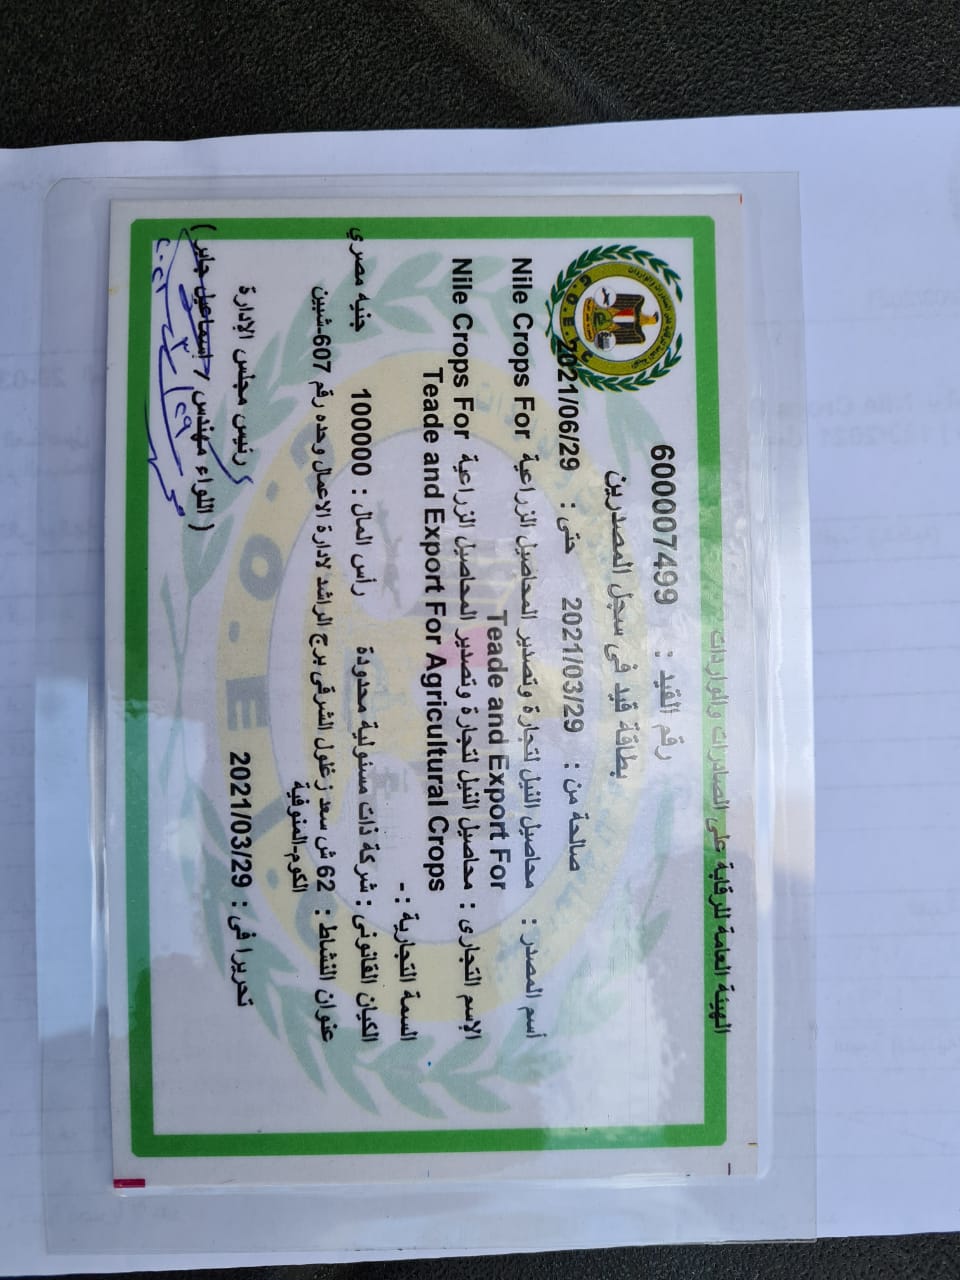 الهيئة العامة للرقابة على الصادرات والواردات
رقم القيد : 600007499
بطاقة قيد فى سجل المصدرين
صالحة من : 2021/03/29 حتى : 2021/06/29
أسم المصدر : محاصيل النيل لتجارة وتصدير المحاصيل الزراعية Nile Crops For
Teade and Export For
الإسم التجارى : محاصيل النيل لتجارة وتصدير المحاصيل الزراعية Nile Crops For
Teade and Export For Agricultural Crops
السمة التجارية : -
الكيان القانونى : شركة ذات مسئولية محدودة رأس المال : 100000 جنيه مصري
عنوان النشاط : 62 ش سعد زغلول الشرقى برج الراشد لادارة الاعمال وحده رقم 607-شبين
الكوم-المنوفية
تحريرا فى : 2021/03/29
رئيس مجلس الإدارة
( اللواء مهندس / إسماعيل جابر )
G.O.E.I.C